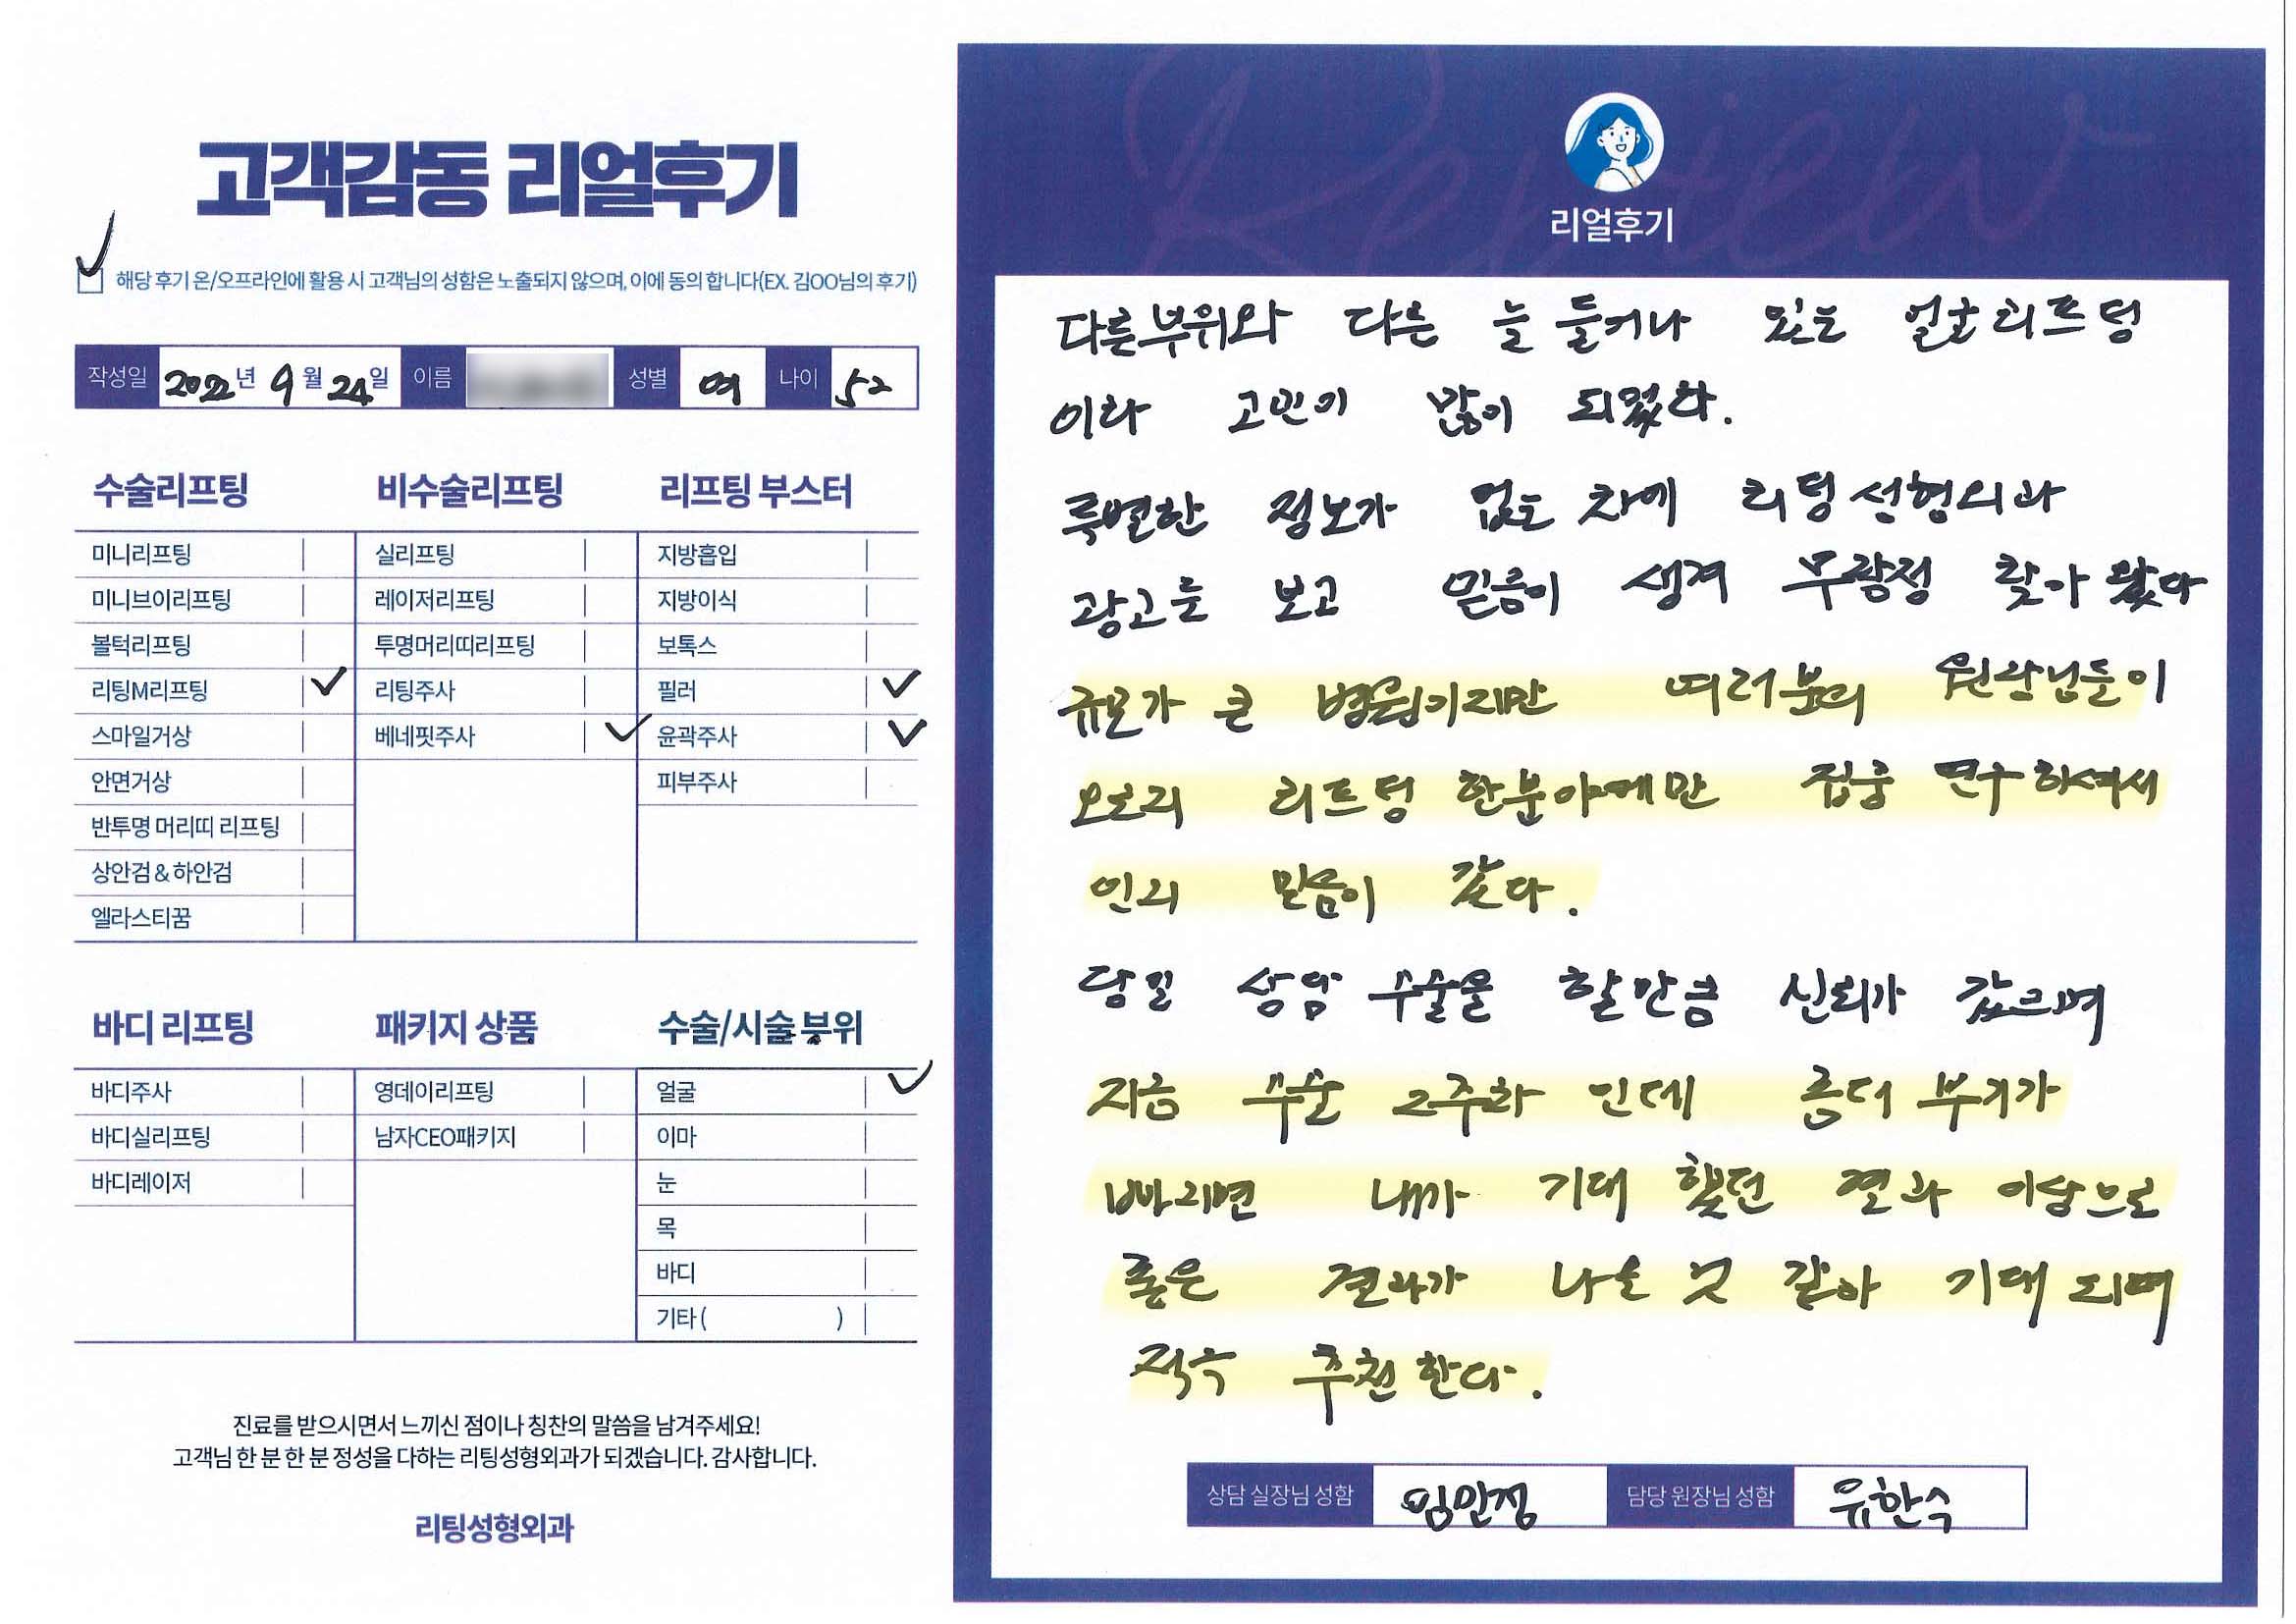 고객감동 리얼후기
해당 후기 온/오프라인에 활용 시 고객님의 성함은 노출되지 않으며, 이에 동의 합니다(EX. 김OO님의 후기)
작성일 2022년 9월 24일 이름 성별 여 나이 52
수술리프팅
미니리프팅
미니브이리프팅
볼턱리프팅
리팅M리프팅
스마일거상
안면거상
반투명 머리띠 리프팅
상안검 & 하안검
엘라스티꿈
비수술리프팅
실리프팅
레이저리프팅
투명머리띠리프팅
리팅주사
베네핏주사
리프팅 부스터
지방흡입
지방이식
보톡스
필러
윤곽주사
피부주사
바디 리프팅
바디주사
바디실리프팅
바디레이저
패키지 상품
영데이리프팅
남자CEO패키지
수술/시술 부위
얼굴
이마
눈
목
바디
기타 ( )
진료를 받으시면서 느끼신 점이나 칭찬의 말씀을 남겨주세요!
고객님 한 분 한 분 정성을 다하는 리팅성형외과가 되겠습니다. 감사합니다.
리팅성형외과
Review
리얼후기
다른부위와 다른 늘 들커나 있는 얼굴리프팅
이라 고민이 많이 되었다.
특별한 정보가 없는 차에 리팅성형외과
광고를 보고 믿음이 생겨 무작정 찾아 왔다
규모가 큰 병원이지만 여러분의 원장님들이
오로지 리프팅 한분야에만 집중 연구하셔서
인지 믿음이 갔다.
당일 상담 수술을 할만큼 신뢰가 갔으며
지금 수술 2주차 인데 좀더 부기가
빠지면 내가 기대 했던 결과 이상으로
좋은 결과가 나올 것 같아 기대 되며
적극 추천한다.
상담 실장님 성함 임민정 담당 원장님 성함 유한수